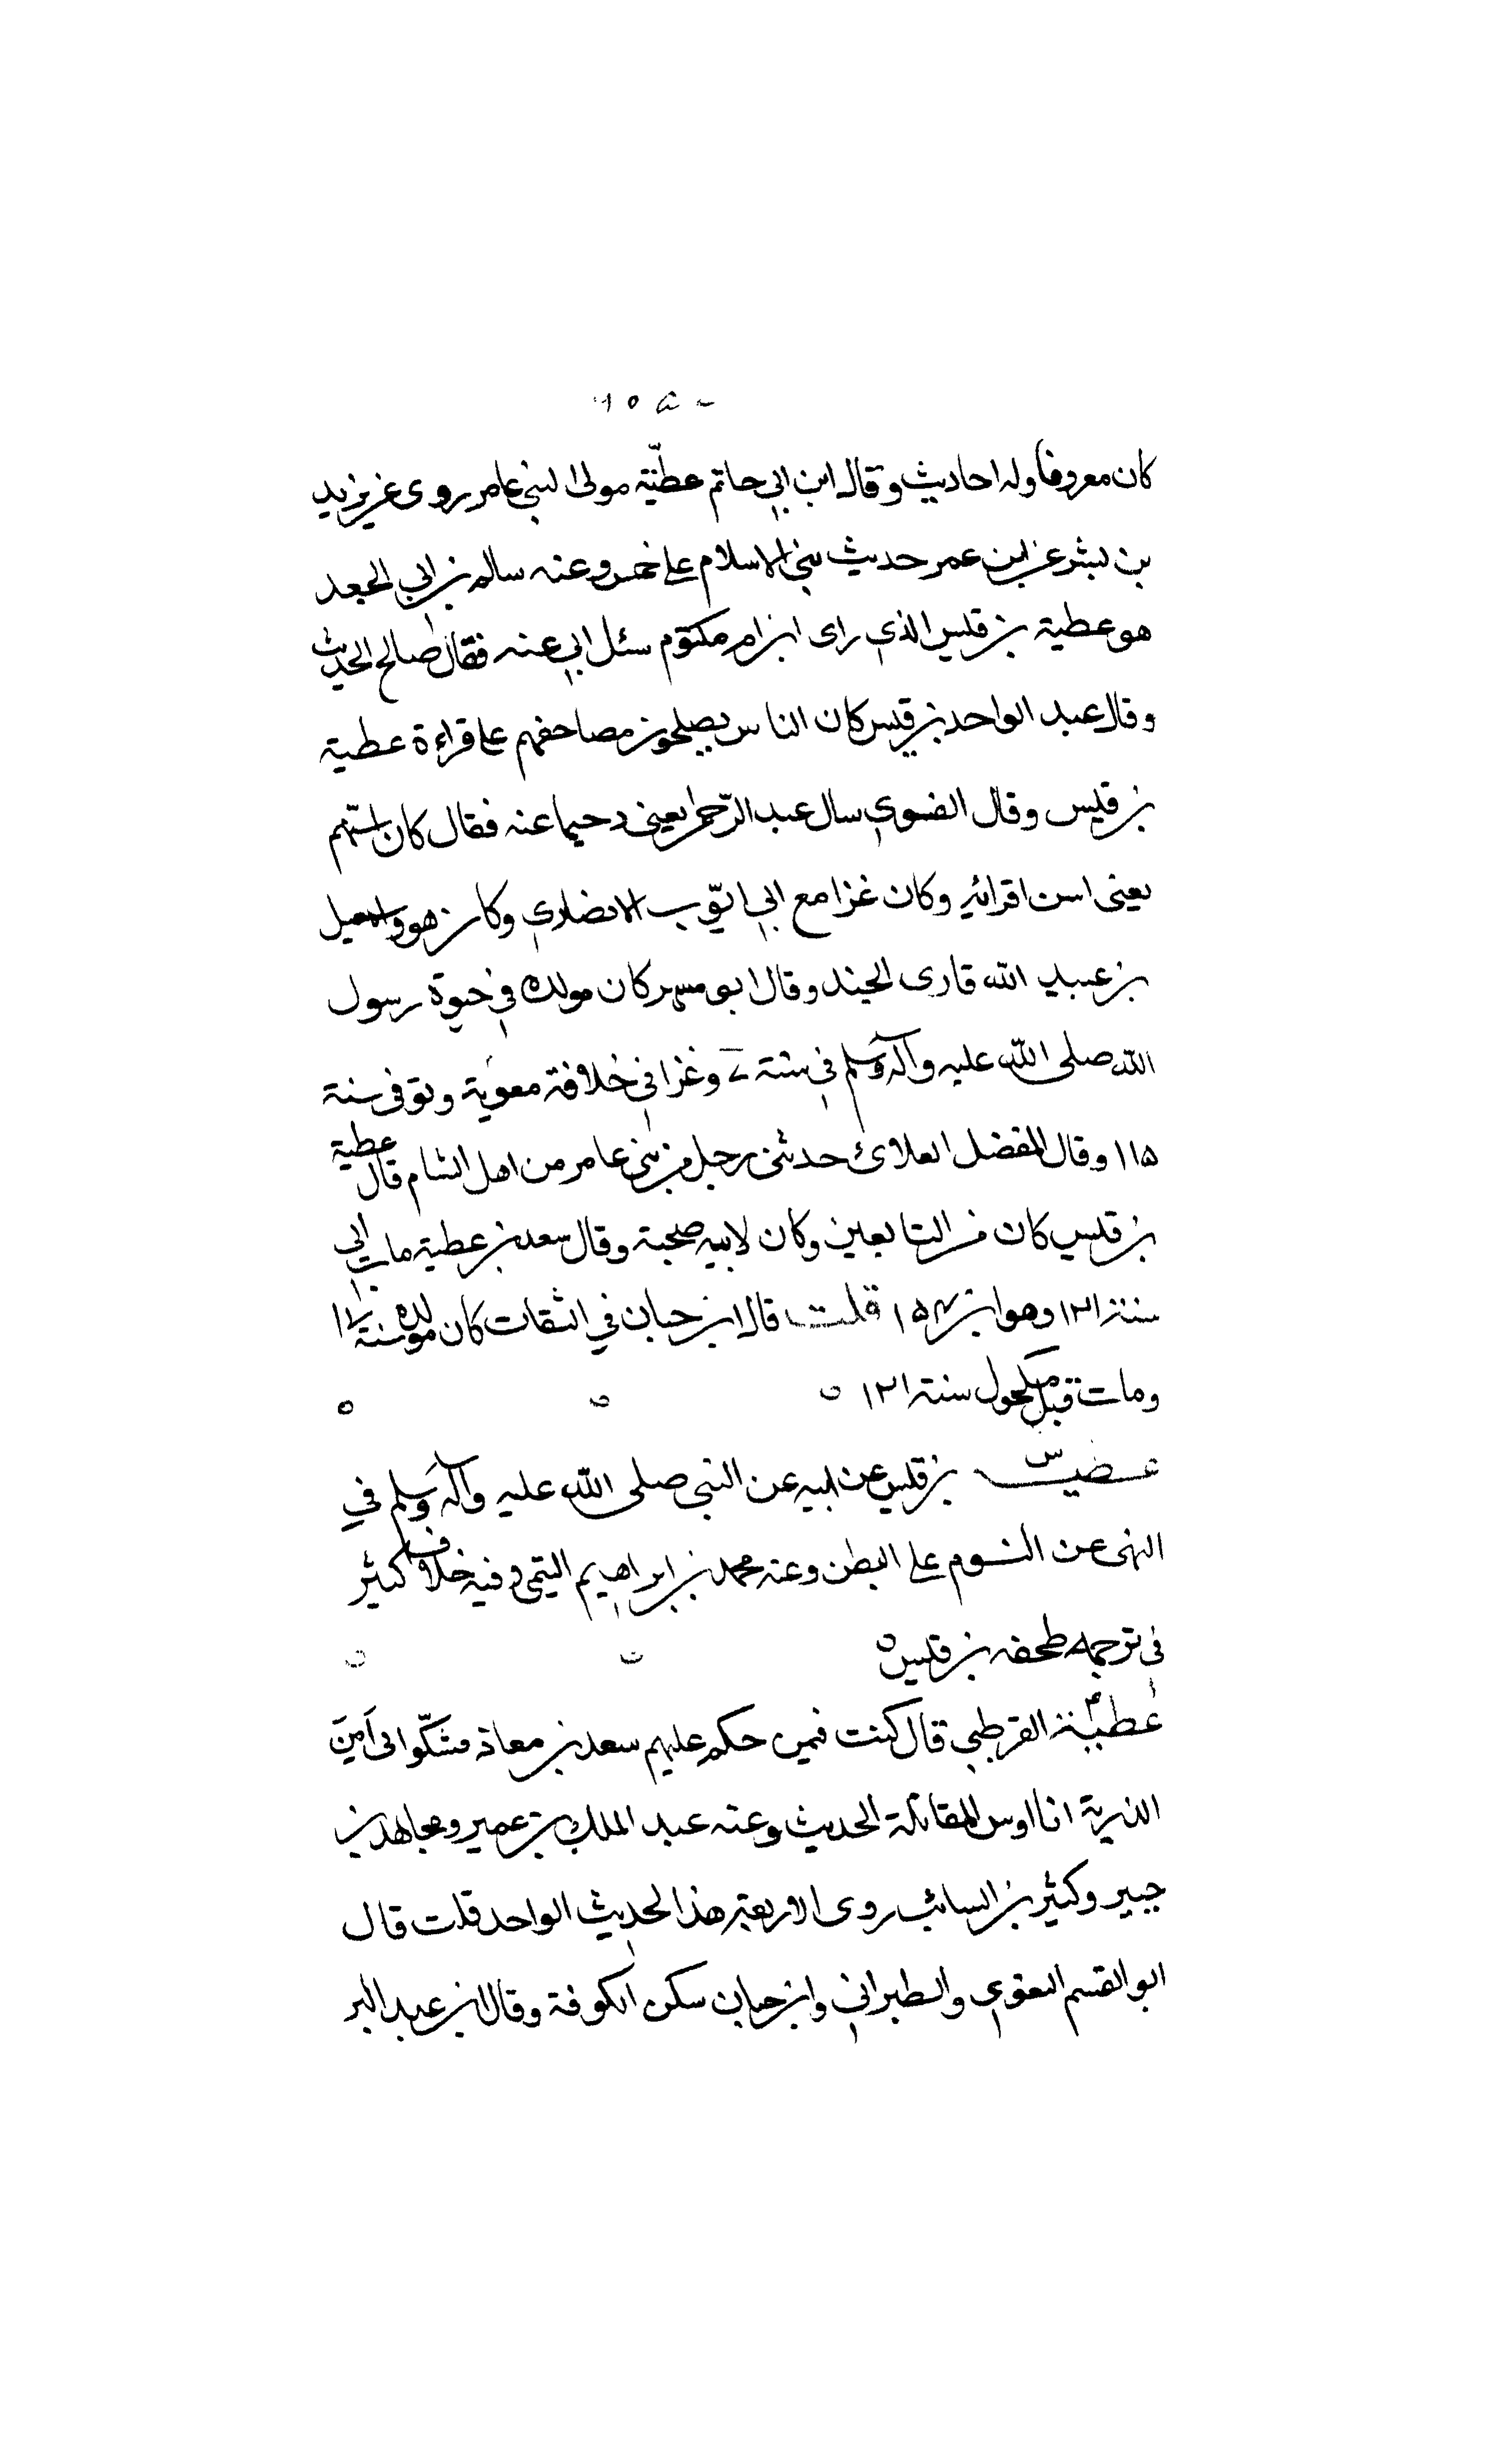 كان معروفا وله احاديث وقال ابن ابي حاتم عطيّة مولى لبني عامر روى عن يزيد
بن بشر عن ابن عمر حديث بني الاسلام على خمس وعنه سالم بن ابي الجعد
هو عطية بن قيس الذي راى ابن ام مكتوم سئل ابي عنه فقال صالح الحديث
وقال عبد الواحد بن قيس كان الناس يصلحون مصاحفهم على قراءة عطية
بن قيس وقال الفسوي سال عبد الرّحمن يعني دحيما عنه فقال كان اسنهم
يعني اسن اقرانه وكان غزا مع ابي ايّوب الانصاري وكان هو واسمعيل
بن عبيد الله قارى الجند وقال ابو مسهر كان مولده في حيوة رسول
الله صلى الله عليه وآله وسلم في سنة ٧ وغزا في خلافة معوية وتوفى سنة
١١٥ وقال المفضل العلائ حدثني رجل من بني عامر من اهل الشام قال عطية
بن قيس كان من التابعين وكان لابيه صحبة وقال سعد بن عطية مات ابي
سنة ١٢١ وهو ابن ١٥٤ قلت قال ابن حبان في الثقات كان مولده سنة ١٧
ومات قبل مكحول سنة ١٢١
بن قيس عن ابيه عن النبي صلى الله عليه وآله وسلم في
النهى عن النوم على البطن وعنه محمد بن ابراهيم التيمي وفيه خلاف كثير
في ترجمه طحفه بن قيس
عطيّة القرظي قال كنت فيمن حكم عليهم سعد بن معاذ فشكّوا في اَمِنَ
الذرية انا او من المقاتلة الحديث وعنه عبد الملك بن عمير ومجاهد بن
جبير وكثير بن السائب روى الاربعة هذا الحديث الواحد قلت قال
ابو القسم البغوي والطبراني وابن حبان سكن الكوفة وقال ابن عبد البر